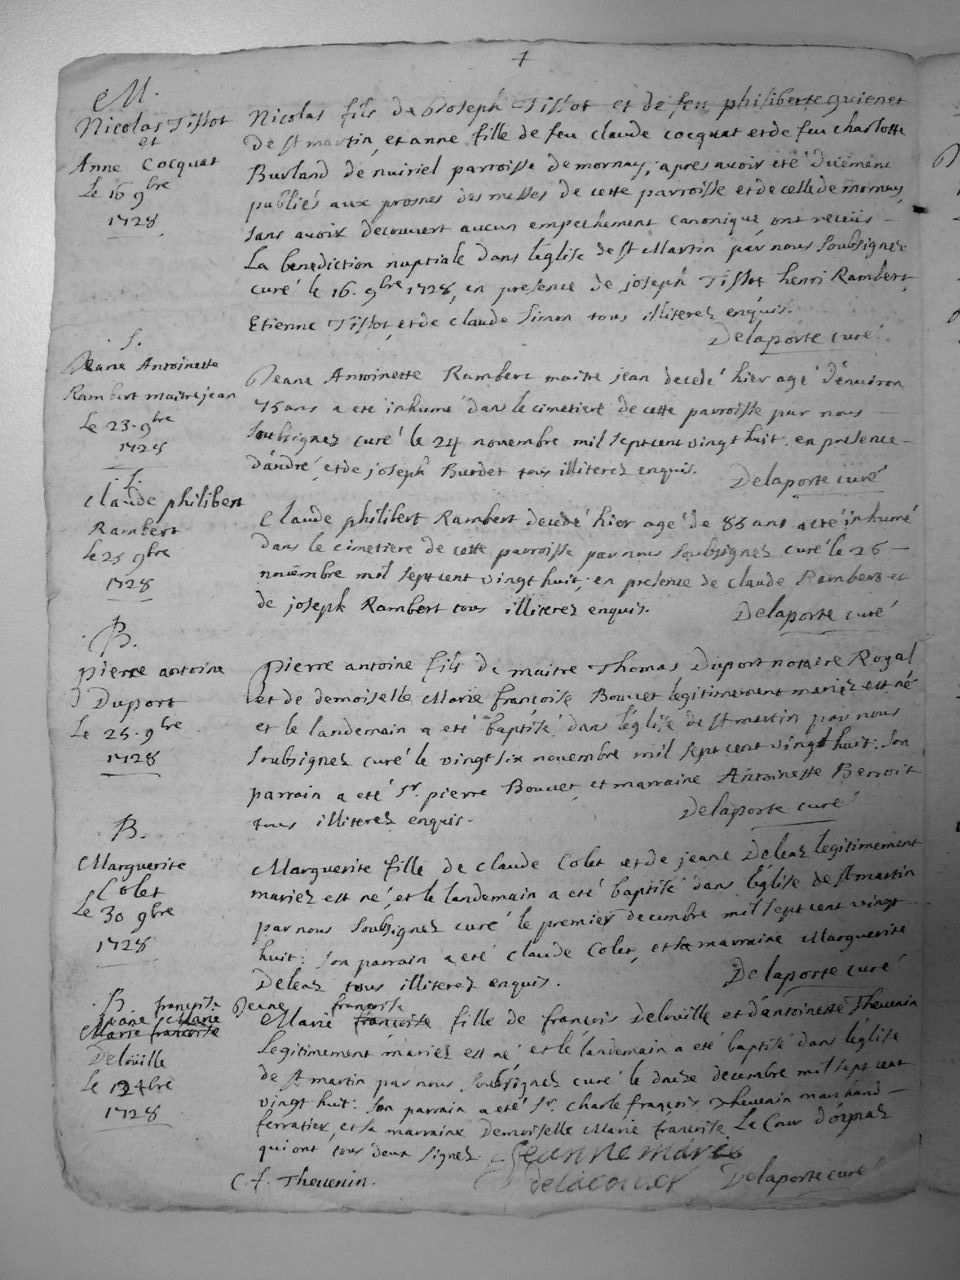 M.
Nicolas Tissot
et
Anne Cocquat
Le 16 9bre
1728
Nicolas fils de Joseph Tissot et de feu philiberte guienet
De st martin, et anne fille de feu claude cocquat et de feu charlotte
Burland de nuiriel parroisse de mornay, apres avoir eté duëment
publiés aux prosnes des messes de cette parroisse et de celle de mornay,
sans avoir découvert aucun empechement canonique, ont receüs
La benediction nuptiale dans l'église de st Martin par nous soubsignez
curé le 16. 9bre 1728, en presence de joseph Tissot henri Rambert,
Etienne Tissot, et de claude Simon tous illiterez enquis.
Delaporte curé
S.
Jeane Antoinette
Rambert maitrejean
Le 23. 9bre
1728
Jeane Antoinette Rambert maitre jean decedé hier agé d'environ
75 ans a eté inhumé dans le cimetiere de cette parroisse par nous
soubsignez curé le 24 novembre mil sept cent vingt huit. en presence
d'andré, et de joseph Burdet tous illiterez enquis.
Delaporte curé
S.
Claude philibert
Rambert
Le 25 9bre
1728
Claude philibert Rambert decedé hier agé de 88 ans a eté inhumé
dans le cimetiere de cette parroisse par nous soubsignez curé le 26
novembre mil sept cent vingt huit; en presence de claude Rambert et
de joseph Rambert tous illiterez enquis.
Delaporte curé
B.
pierre antoine
Duport
Le 25. 9bre
1728
pierre antoine fils de maitre Thomas Duport notaire Royal
et de demoiselle Marie françoise Bouvet legitimement mariez est né
et le landemain a eté baptisé dans l'église de st martin par nous
soubsignez curé le vingt six novembre mil sept cent vingt huit: son
parrain a eté sr. pierre Bouvet, et marraine Antoinette Benoit
tous illiterez enquis.
Delaporte curé
B.
Marguerite
Colet
Le 30 9bre
1728
Marguerite fille de claude Colet et de jeane Deleaz legitimement
mariez est né, et le landemain a eté baptisé dans l'église de st martin
par nous soubsignez curé le premier decembre mil sept cent vingt
huit: son parrain a eté claude Colet, et sa marraine Marguerite
Deleaz tous illiterez enquis.
Delaporte curé
B. françoise
jeane Marie
Marie françoise
Deloüille
Le 12 4bre
1728
Jeane françoise
Marie françoise fille de françois Deloüille et d'antoinette Thevenin
Legitimement mariez est né et le landemain a eté baptisé dans l'église
de st martin par nous soubsignez curé le douze decembre mil sept cent
vingt huit: son parrain a eté sr. charle françois Thevenin marchand
ferratier, et sa marraine demoiselle Marie françoise La Cour d'órpaz
qui ont tous deux signez
jeanne marie
C. f. Thevenin.
delacour
Delaporte curé